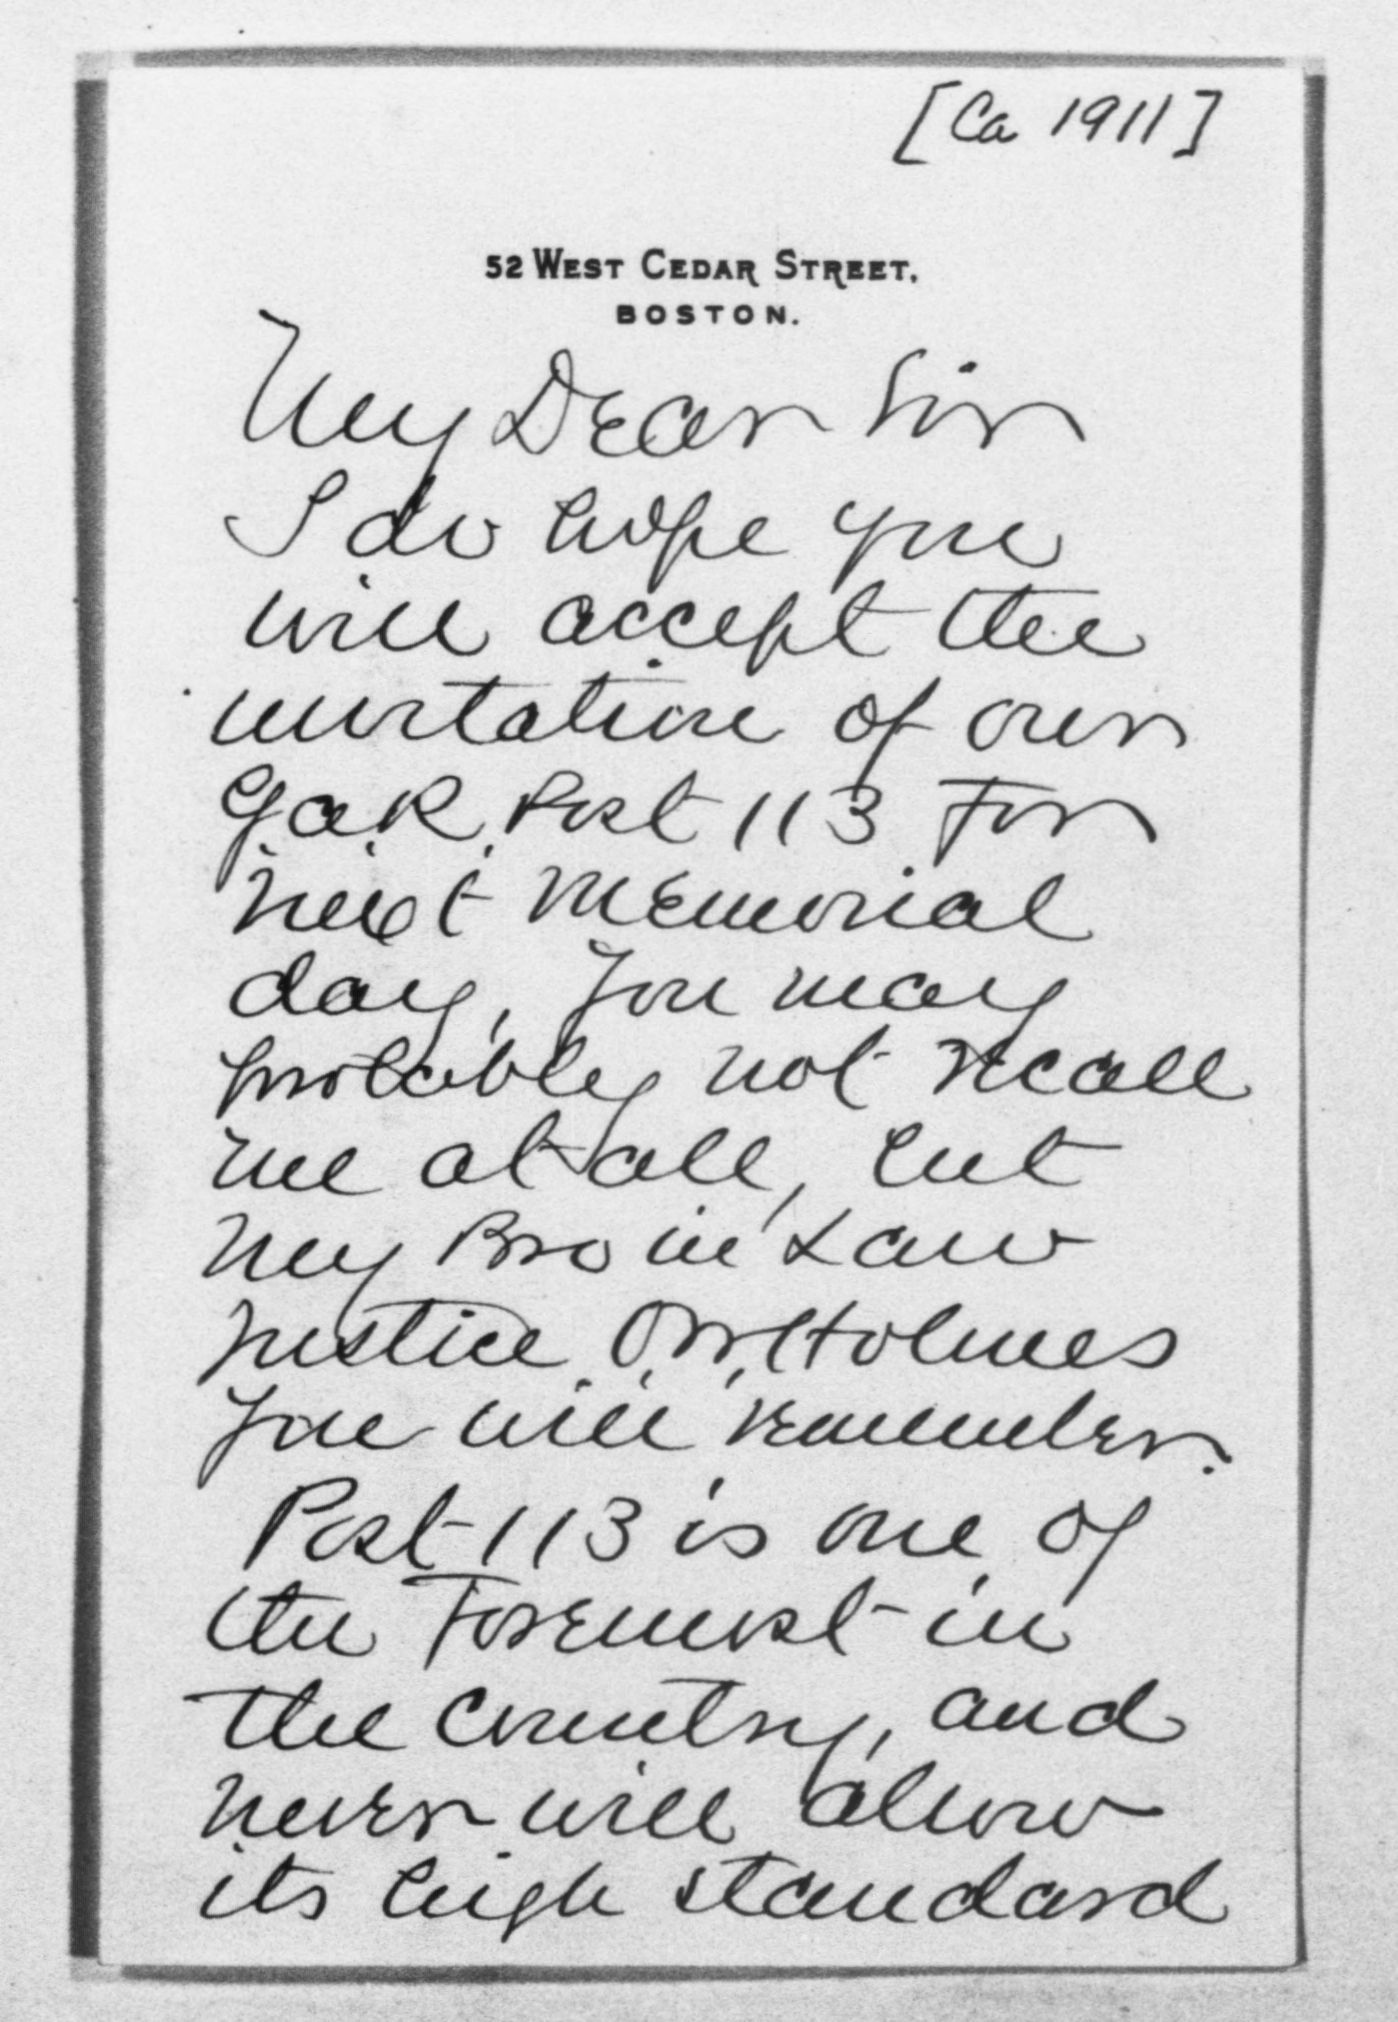 [Ca 1911]
52 WEST CEDAR STREET,
BOSTON.
My Dear Sir
I do hope you
will accept the
invitation of our
G.A.R. Post 113 For
next Memorial
day, You may
probably not recall
me at all, but
my Bro in Law
Justice O.W. Holmes
you will remember.
Post 113 is one of
the Foremost in
the Country, and
never will allow
its high standard